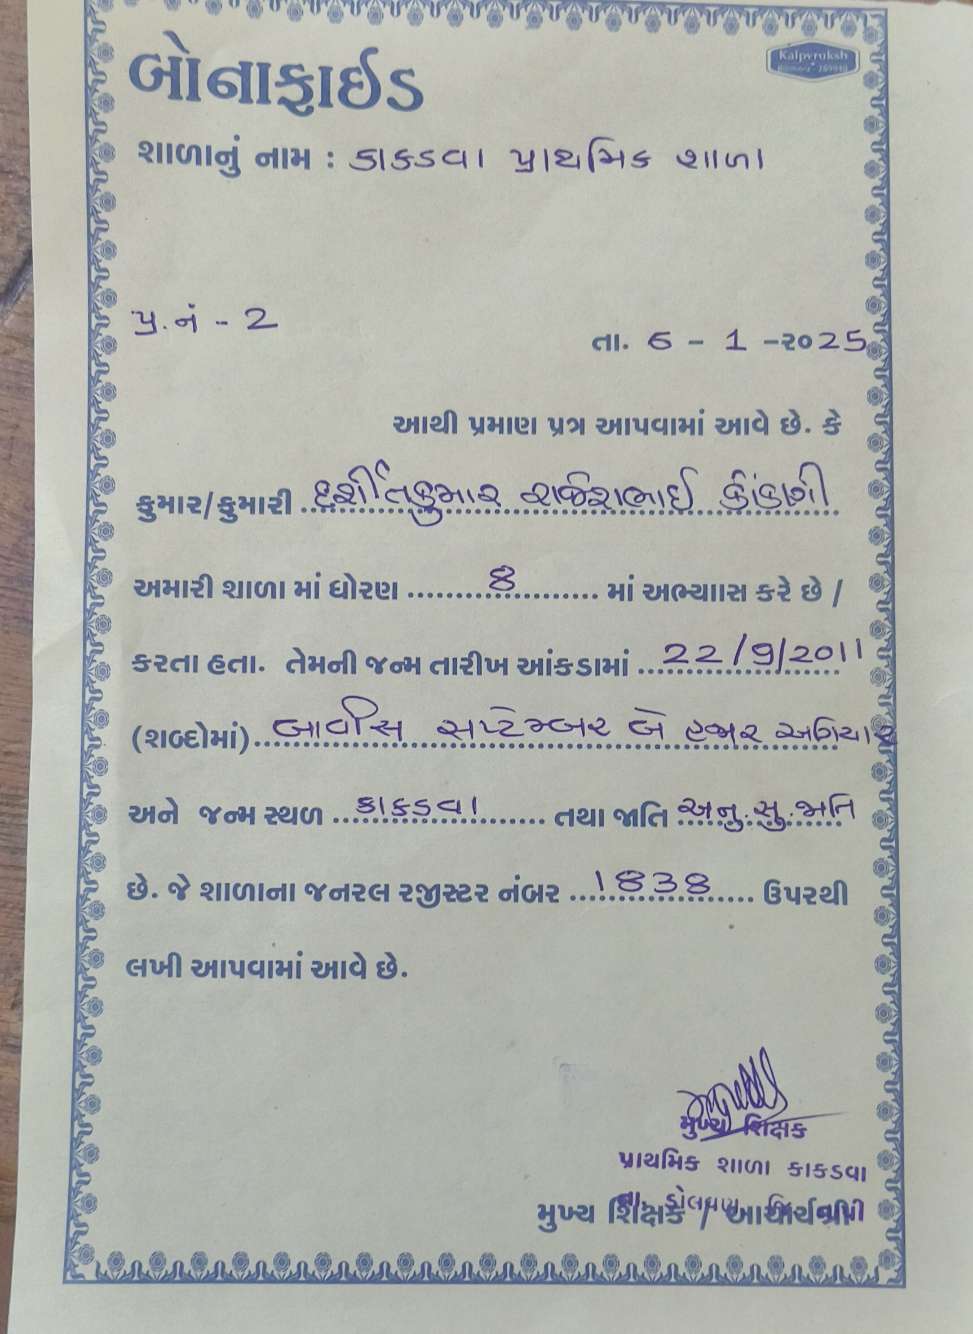 બોનાફાઈડ
Kalpvruksh
શાળાનું નામ : કાકડવા પ્રાથમિક શાળા
પ્ર.નં - 2
તા. 6 - 1 -૨૦25
આથી પ્રમાણ પત્ર આપવામાં આવે છે. કે
કુમાર/કુમારી દર્શીતકુમાર રાજેશભાઈ
અમારી શાળા માં ધોરણ 8 માં અભ્યાાસ કરે છે /
કરતા હતા. તેમની જન્મ તારીખ આંકડામાં 22/9/2011
(શબ્દોમાં) બાવીસ સપ્ટેમ્બર બે હજાર અગિયાર
અને જન્મ સ્થળ કાકડવા તથા જાતિ અનુ.સુ.જાતિ
છે. જે શાળાના જનરલ રજીસ્ટર નંબર 1838 ઉપરથી
લખી આપવામાં આવે છે.
મુખ્ય શિક્ષક
પ્રાથમિક શાળા કાકડવા
તા. ડોલવણ
મુખ્ય શિક્ષક / આચાર્યશ્રી